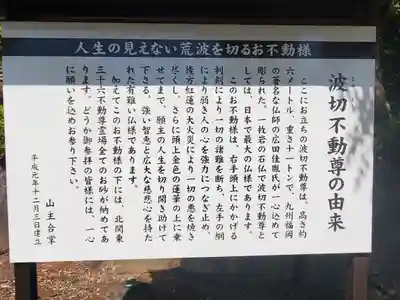 人生の見えない荒波を切るお不動様
波切不動尊の由来
ここにお立ちの波切不動尊は、高さ約
六メートル、重さ十一トンで、九州福岡
の著名な仏師の広田佳胤氏が一心込めて
彫られた。一枚岩の石仏で波切不動尊と
しては、日本で最大の仏様であります。
このお不動様は、右手頭上にかかげる
利剣により一切の諸難を断ち、左手の綱
により弱き人の心を強力につなぎ止め、
後方紅蓮の大火災により一切の悪を焼き
尽くし、さらに頭上金色の蓮華の上に乗
せてまで、願主の人生を切り開き助けて
下さる。強い智恵と広大な慈悲心を持た
れた有難い仏様であります。
加えてこのお不動様の下には、北関東
三十六不動尊霊場全てのお砂が納めてあ
ります。どうか御参拝の皆様には、一心
に願いを込めお参り下さい。
平成元年十二月三日建立
山主合掌